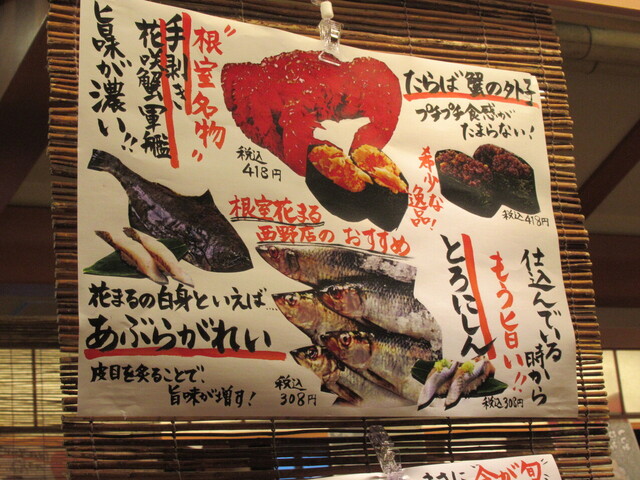 "根室名物"
手剥き
花咲蟹軍艦
旨味が濃い!!
税込
418円
たらば蟹の外子
プチプチ食感が
たまらない!
希少な
逸品!
税込418円
根室花まる
西野店のおすすめ
花まるの白身といえば....
あぶらがれい
皮目を炙ることで、
旨味が増す!
税込
308円
仕込んでいる時から
もう旨い!!
とろにしん
税込308円
まさに
今が旬